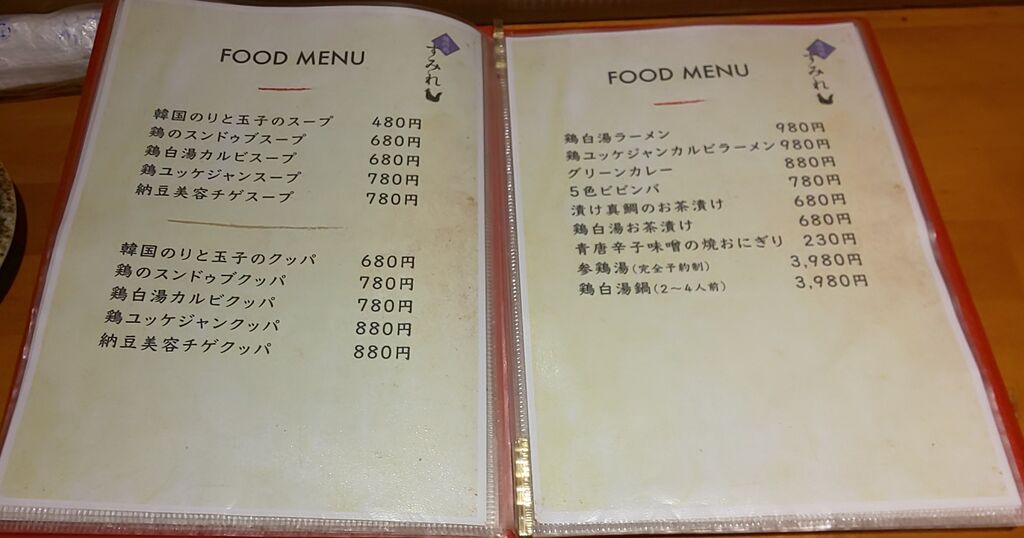 FOOD MENU
すみれ
韓国のりと玉子のスープ 480円
鶏のスンドゥブスープ 680円
鶏白湯カルビスープ 680円
鶏ユッケジャンスープ 780円
納豆美容チゲスープ 780円
韓国のりと玉子のクッパ 680円
鶏のスンドゥブクッパ 780円
鶏白湯カルビクッパ 780円
鶏ユッケジャンクッパ 880円
納豆美容チゲクッパ 880円
FOOD MENU
すみれ
鶏白湯ラーメン 980円
鶏ユッケジャンカルビラーメン 980円
グリーンカレー 880円
5色ビビンバ 780円
漬け真鯛のお茶漬け 680円
鶏白湯お茶漬け 680円
青唐辛子味噌の焼おにぎり 230円
参鶏湯(完全予約制) 3,980円
鶏白湯鍋(2〜4人前) 3,980円